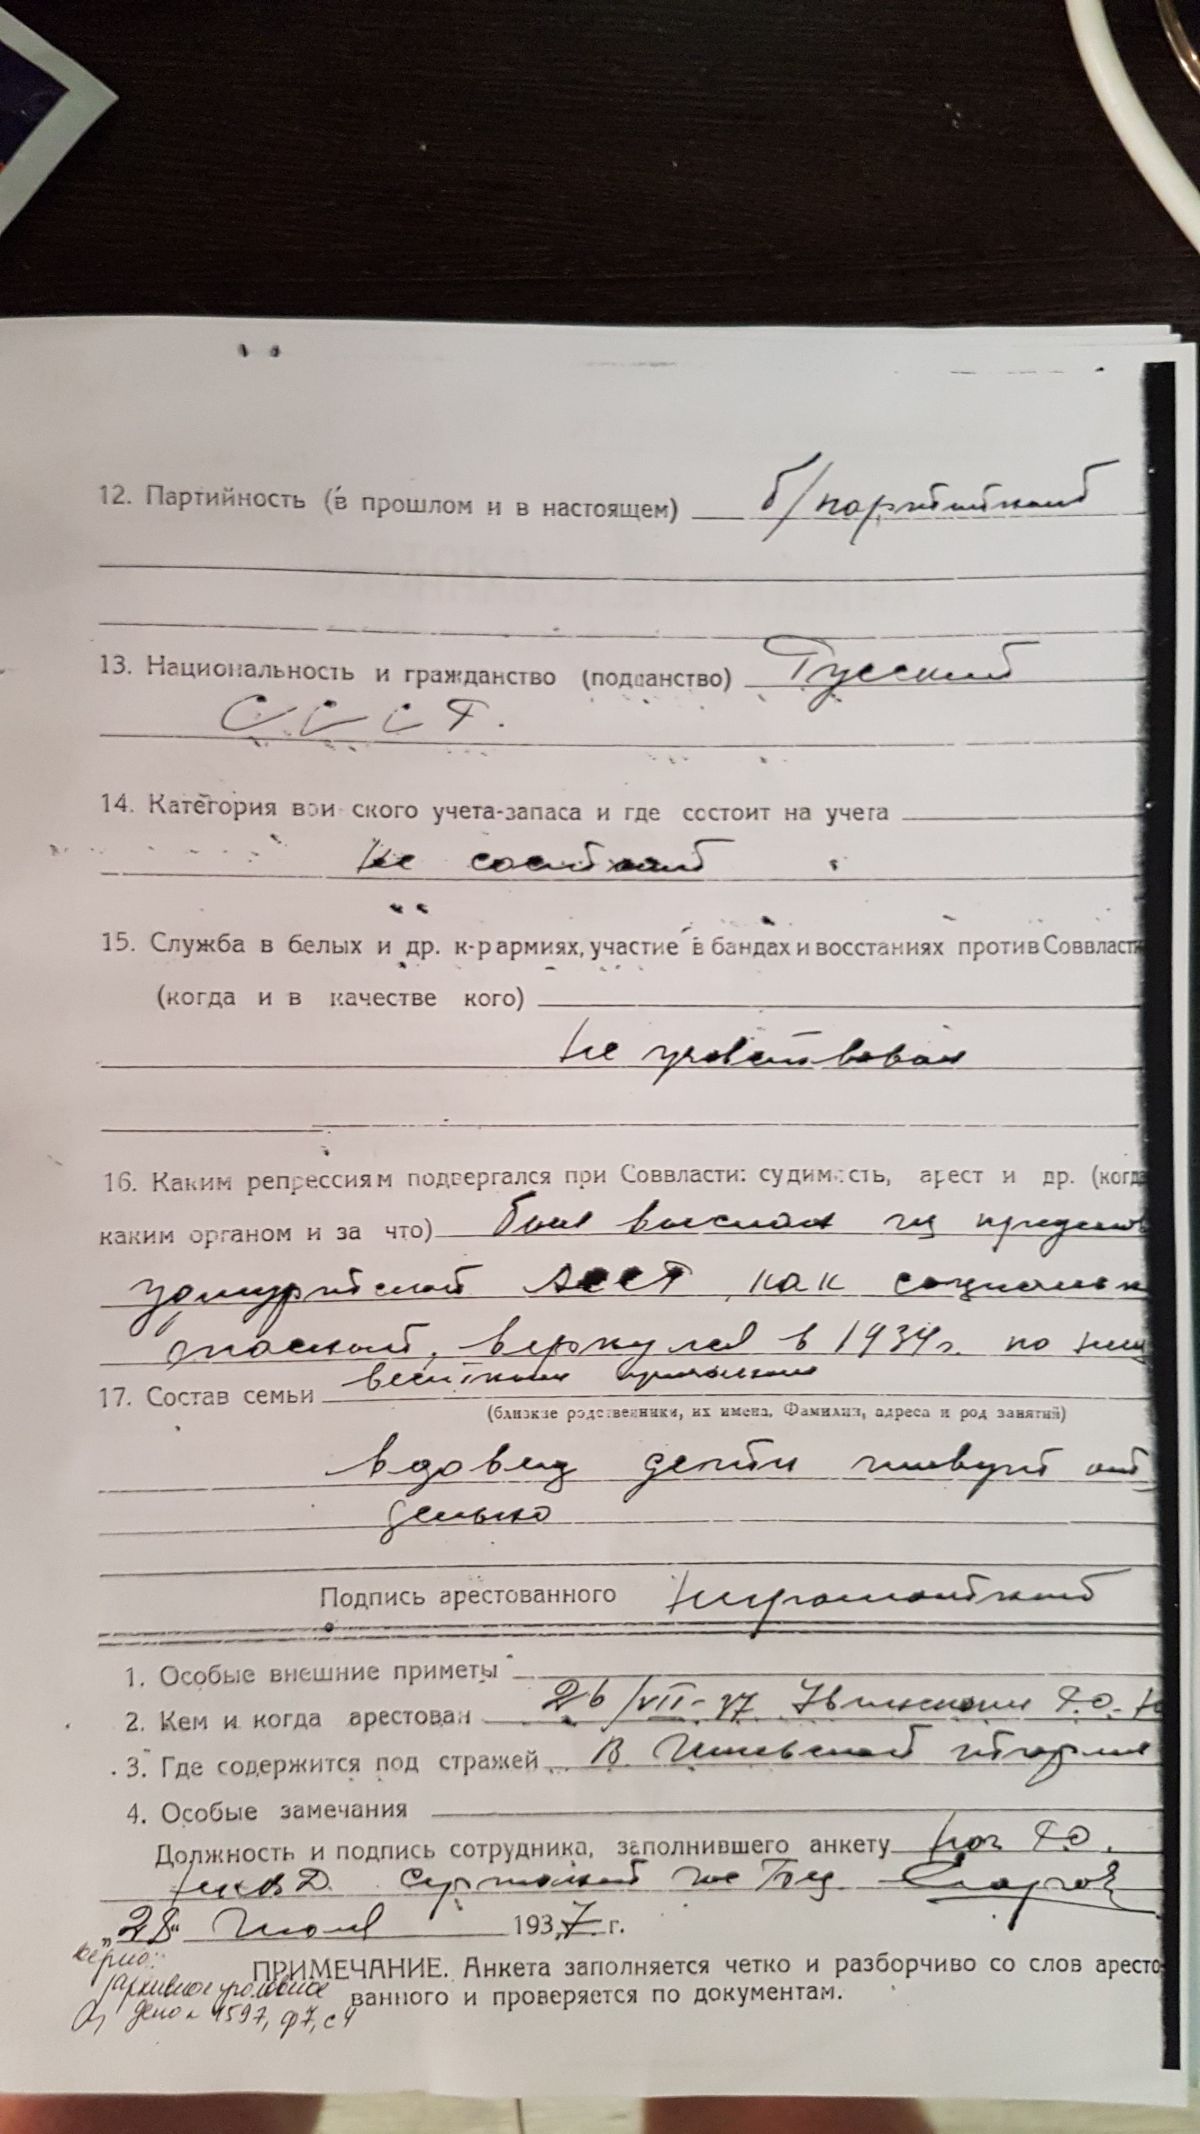 12. Партийность (в прошлом и в настоящем) б/партийный
13. Национальность и гражданство (подданство) Русский
СССР.
14. Категория воинского учета-запаса и где состоит на учета
Не состоит
15. Служба в белых и др. к-р армиях, участие в бандах и восстаниях против Соввласти
(когда и в качестве кого)
Не участвовал
16. Каким репрессиям подвергался при Соввласти: судимость, арест и др. (когда
каким органом и за что) был выслан из пределов
Удмуртской АССР, как социальн
опасный, вернулся в 1934г. по
17. Состав семьи
(близкие родственники, их имена, фамилии, адреса и род занятий)
вдовец дети живут от
дельно
Подпись арестованного
1. Особые внешние приметы
2. Кем и когда арестован 26/VII-37 РО.
3. Где содержится под стражей В Ижевской тюрьме
4. Особые замечания
Должность и подпись сотрудника, заполнившего анкету Нач РО.
НКВД
„28“ Июля 1937 г.
верно:
архивное уголовное
дело 4597, ф7, с4
ПРИМЕЧАНИЕ. Анкета заполняется четко и разборчиво со слов аресто
ванного и проверяется по документам.